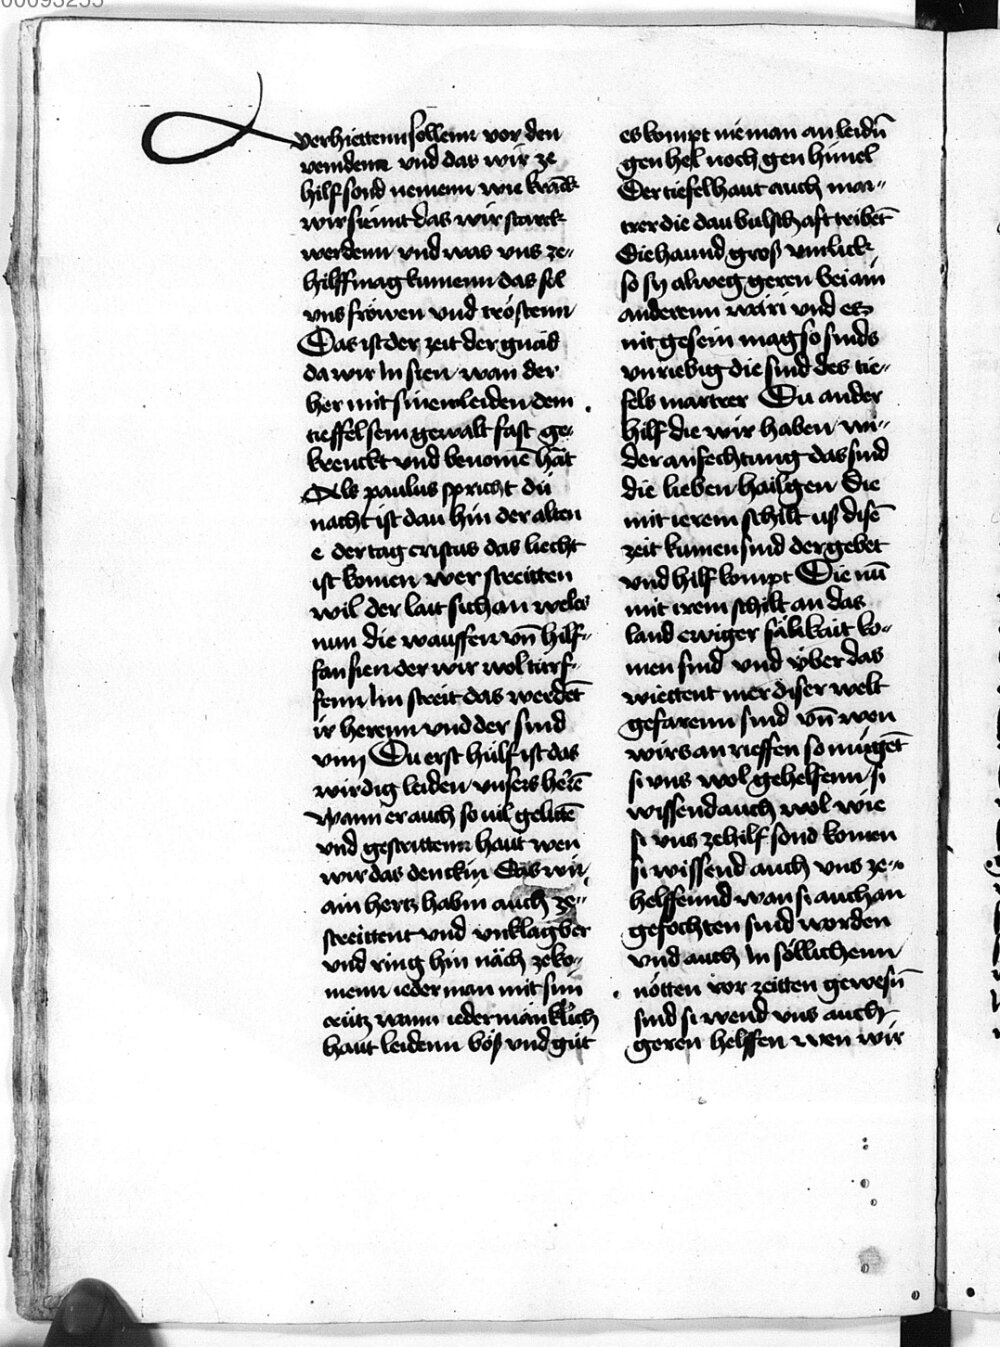 00095255
verhiettenn sollenn vor den
veindenn vnd das wir ze
hilf sond nemenn wie kranck
wir siemt das wir starck
werdenn vnd was vns ze-
hilff mag kumenn das sol
vns fröwen vnd tröstenn
Das ist der zeit der gnad
da wir In sien wan der
her mit sinem leiden dem
tieffel sein gewalt fast ge-
krenckt vnd benomē hāt
Als paulus spricht dü
nacht ist dan hin der alten
e der tag cristus das liecht
ist komen wer streitten
wil der lait sich an welcs
nun die wauffen vn̄ hilf-
fan sien der wir wol türf-
fenn Im streit das werdēt
ir herenn vnd der sind
viiij Du erst hülf ist das
wirdig leiden vnsers herē
wann er auch so uil gelittē
vnd gestrittenn haut wen
wir das denckin Das wir
ain hertz habin auch ze-
streittent vnd vnklagber
vnd ring hin näch zeko-
menn ieder man mit sim
creütz wann iedermänklich
haut leidenn böß vnd güt
es kompt nieman an leidū
gen hel noch gen himel
Der tiefel haut auch mar-
trer die dau bulschaft tribēt
Die haund gros vnlick
so sy alweg geren bei ain
anderenn wäri vnd es
nit gesein mag so sinds
vnriebig die sind des tie-
fels martrer Du ander
hilf die wir haben wi-
der anfechtung das sind
die lieben hailgen Die
mit ierem schilt uß disē
zeit kumen sind der gebet
vnd hilf kompt Die nū
mit irem schilt an das
land ewiger sälikait ko-
men sind vnd über das
wiettent mer diser welt
gefarenn sind vn̄ wen
wirs an rieffen so mügēt
si vns wol gehelfenn si
wissend auch wol wie
si vns zehilf sond komen
si wissend auch vns ze-
helffennd wan si auch an
gefochten sind worden
vnd auch In söllichenn
nötten vor zeitten gewesn̄
sind si wend vns auch
geren helffen wen wir